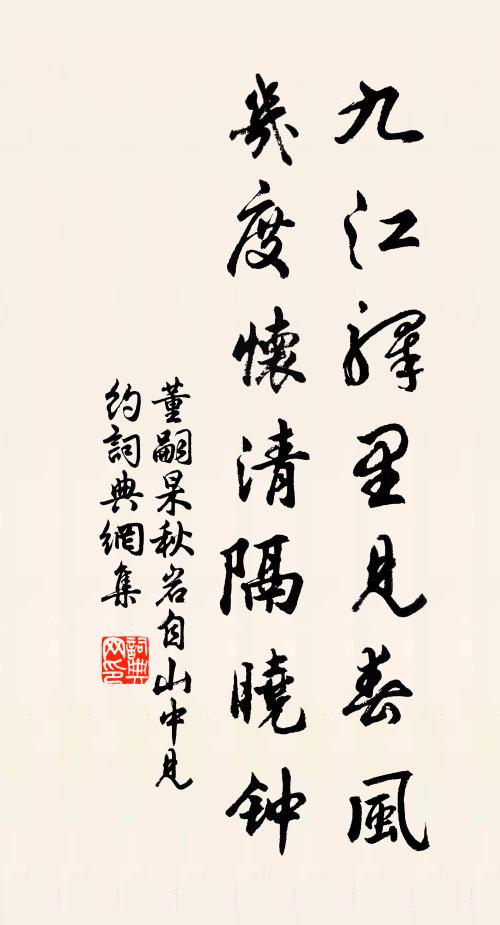 九江驛里見春風
幾度懷清隔曉钟
董嗣杲秋岩自山中見
約詞典網集
詞典
网印